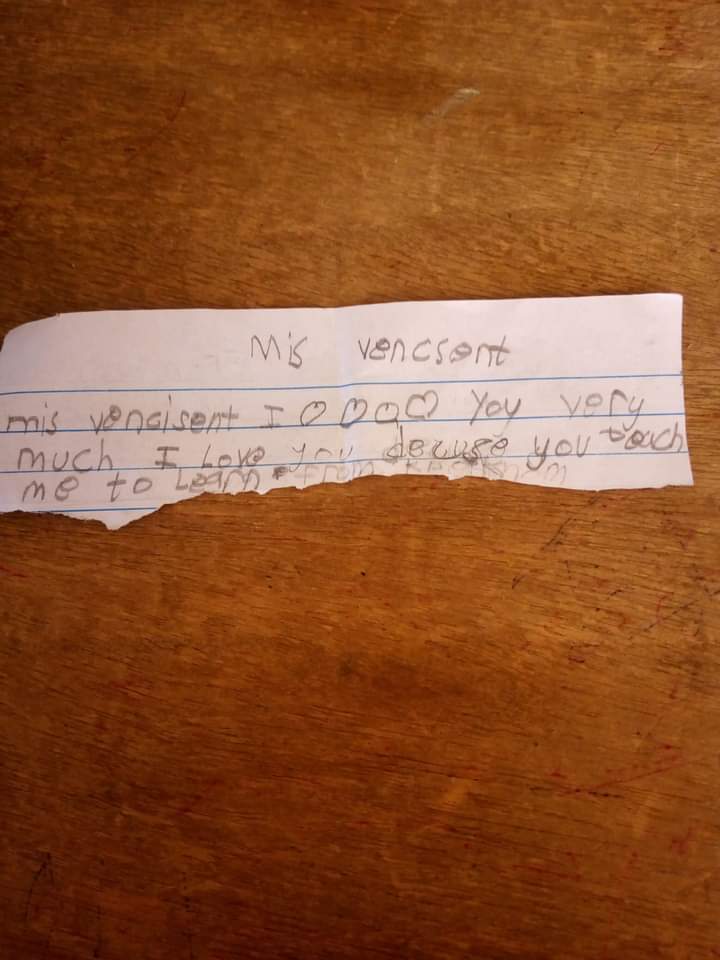 Mis vencsent
mis vencisent I ♡♡♡♡ You very
much I Love you decuse you teach
me to Learn from